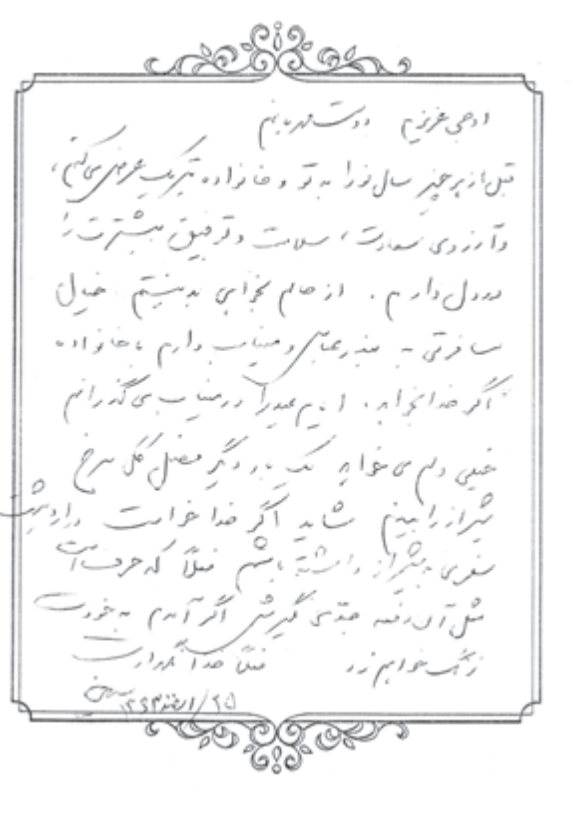 عزیزم دوست مهربانم
قبل از هر چیز سال نو را به تو و خانواده تبریک عرض می‌کنم،
و آرزوی سعادت، سلامت و توفیق بیشترت را
در دل دارم. از حالم بخواهی بد نیستم خیال
مسافرتی به بندرعباس و میناب دارم با خانواده
اگر خدا بخواهد. ایام عید را در میناب می‌گذرانم
خیلی دلم می‌خواهد یک بار دیگر گل سرخ
شیراز را ببینم شاید اگر خدا خواست در اردیبهشت
سفری به شیراز داشته باشم فعلاً که حرف است
مثل آن دفعه جدی نگیرش اگر آمدم به خودت
زنگ خواهم زد فعلاً خدا نگهدارت
۲۵/اسفند